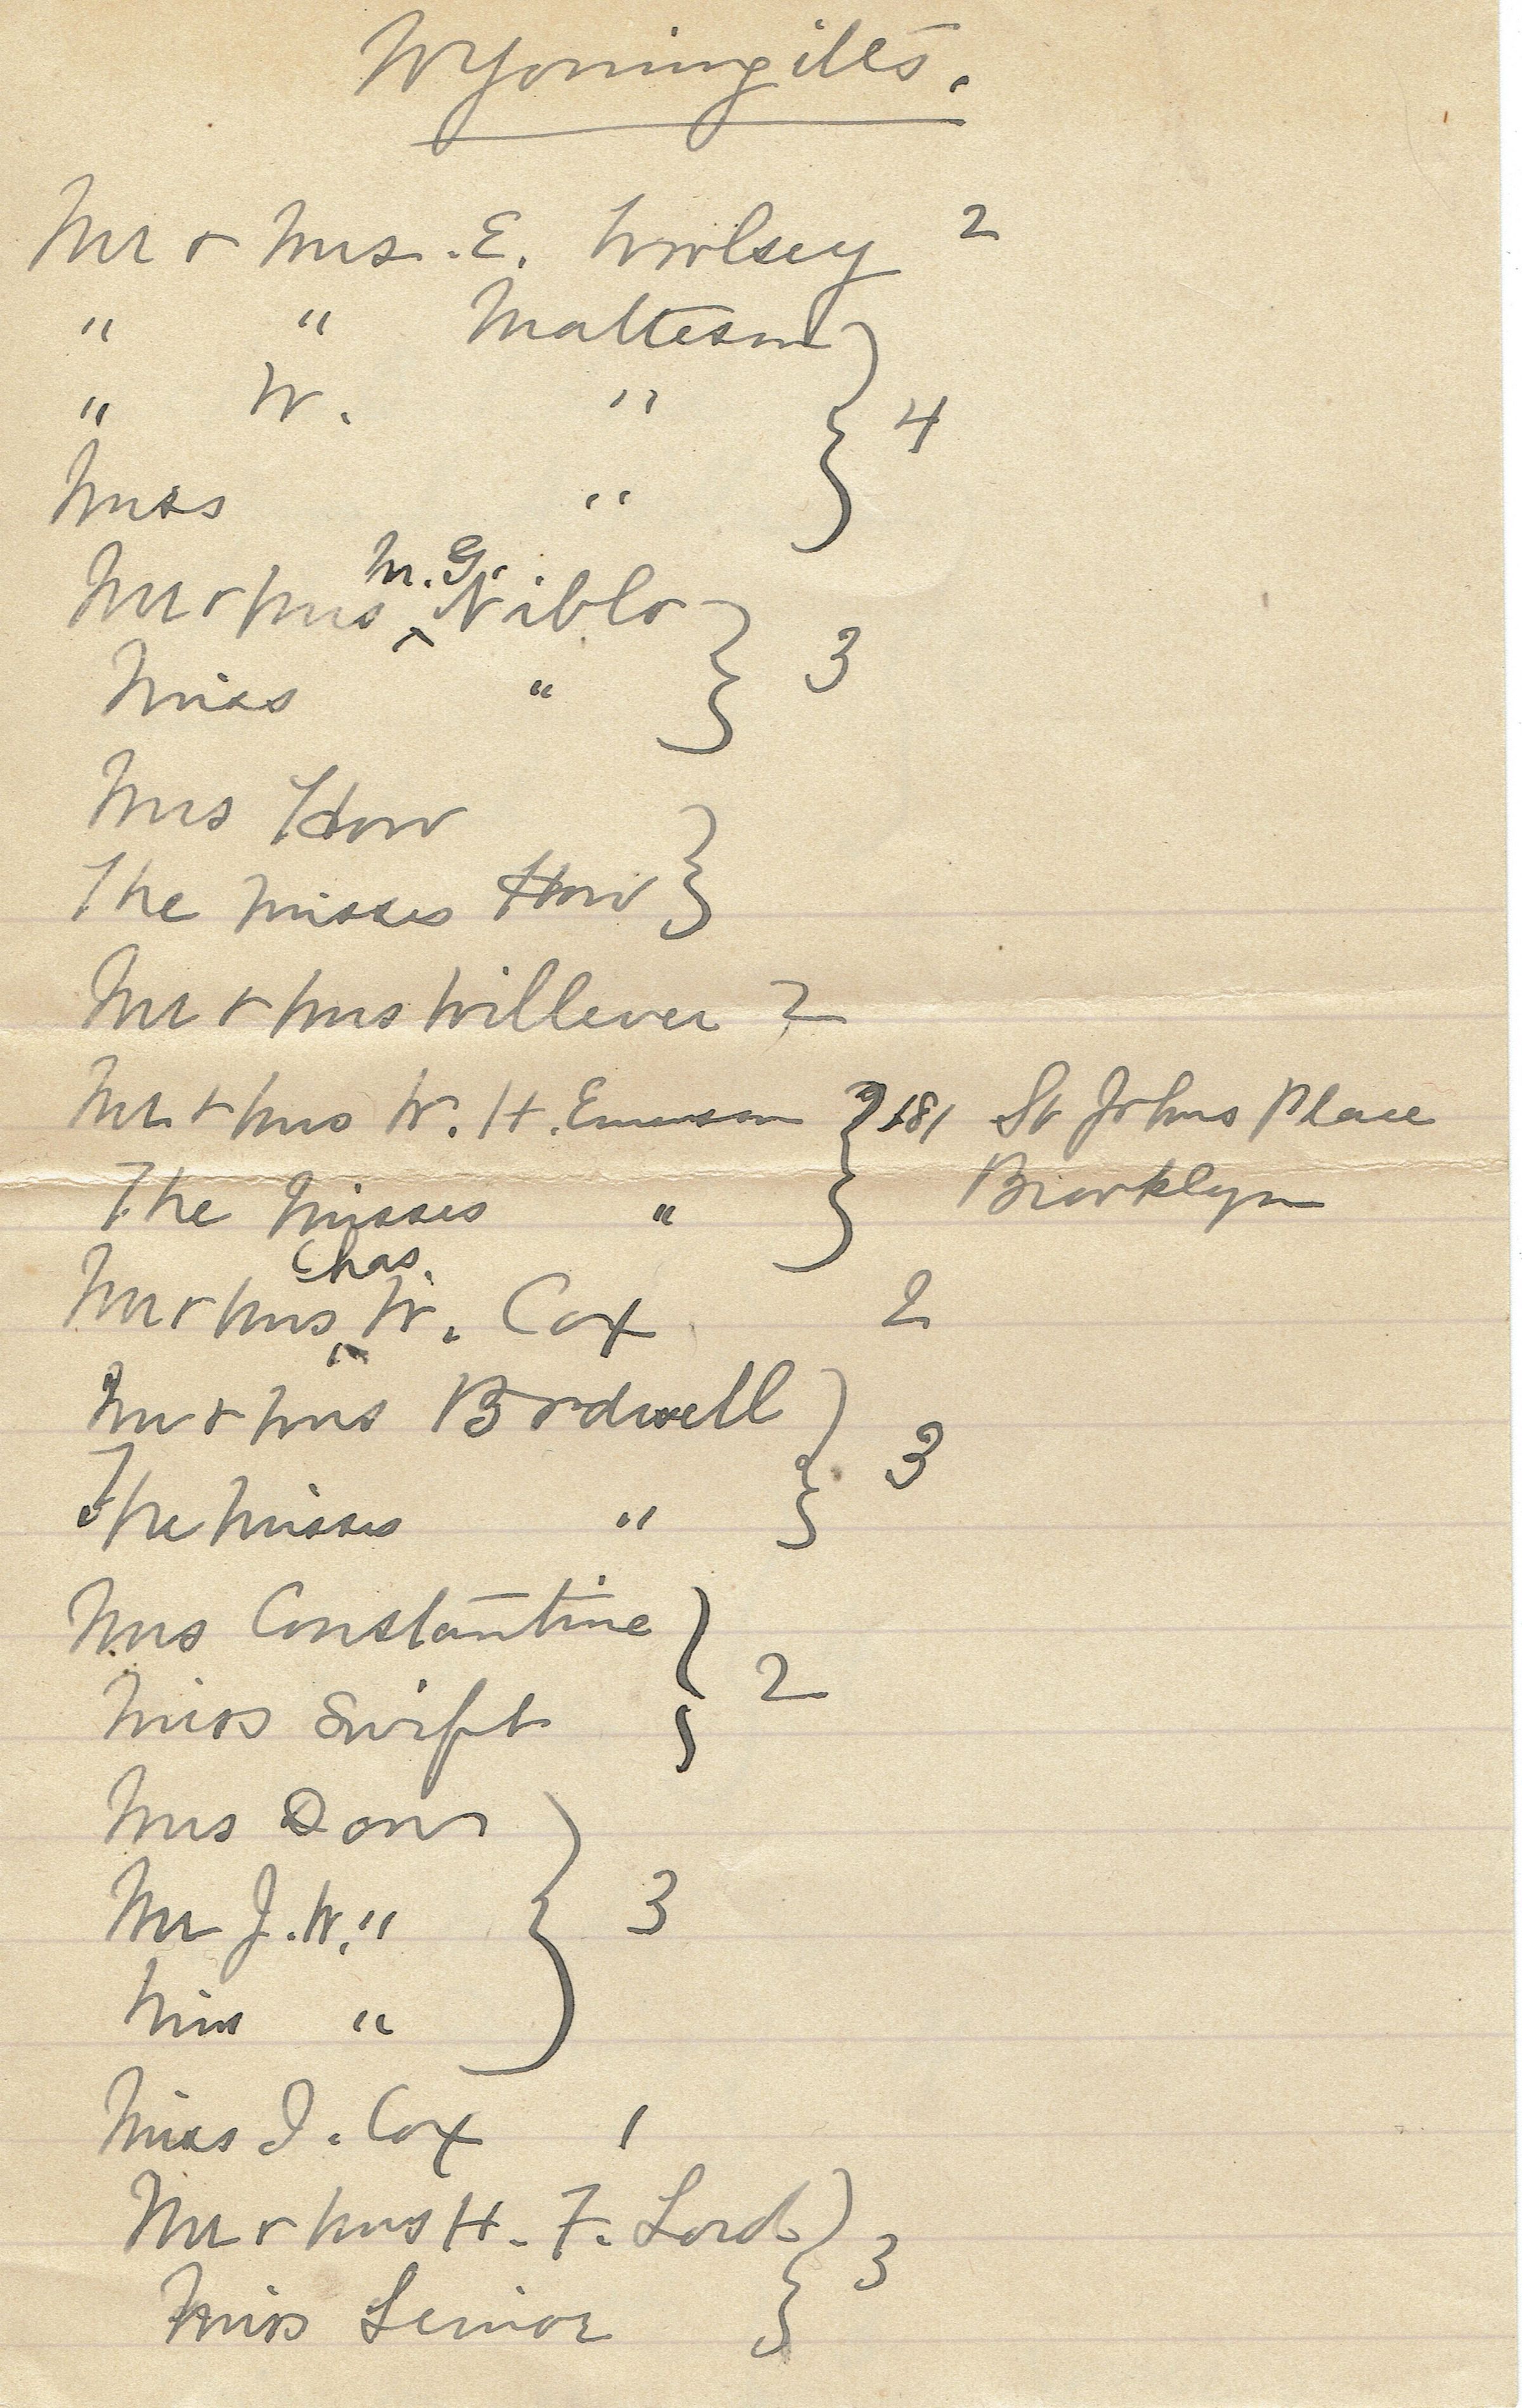 Wyomingites.
Mr & Mrs. E. Woolsey 2
" " Matteson
" W. " 4
Miss "
Mr & Mrs M. G. Niblo
Miss " 3
Mrs How
The Misses How
Mr & Mrs Willever 2
Mr & Mrs W. H. Emerson 181 St Johns Place
Brooklyn
The Misses "
Mr & Mrs Chas. W. Cox 2
Mr & Mrs Bodwell
The Misses " 3
Mrs Constantine
Miss Swift 2
Mrs Dow
Mr J. W. " 3
Miss "
Miss I. Cox 1
Mr & Mrs H. F. Lord
Miss Senior 3